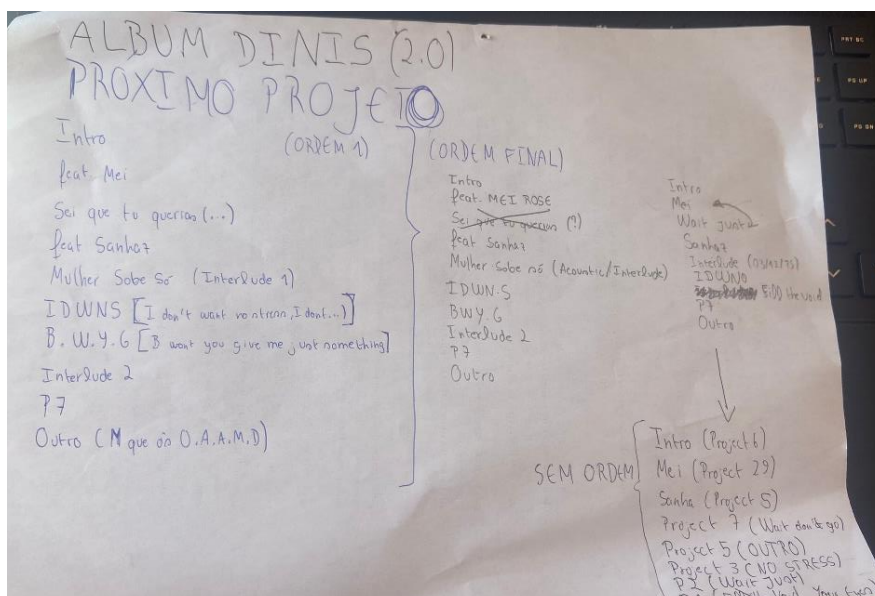 ALBUM DINIS (2.0)
PROXIMO PROJETO
(ORDEM 1)
Intro
feat. Mei
Sei que tu querias (...)
feat Sanhaz
Mulher Sobe Só (Interlude 1)
IDWNS [I don't want no stress, I dont...)]
B. W. Y. G [B want you give me just something]
Interlude 2
P7
Outro (N que óó O.A.A.M.D)
(ORDEM FINAL)
Intro
feat. MEI ROSE
Sei que tu querias (?)
feat Sanhaz
Mulher Sobe só (Acoustic/Interlude)
IDWN.S
BWY.G
Interlude 2
P7
Outro
Intro
Mei
Wait just
Sanhaz
Interlude
IDWNO
5:00
P7
Outro
SEM ORDEM
Intro (Project 6)
Mei (Project 29)
Sanha (Project 5)
Project 7 (Wait don't go)
Project 5 (OUTRO)
Project 3 (NO STRESS)
(Wait Just)
PRT SC
PG UP
PG DN